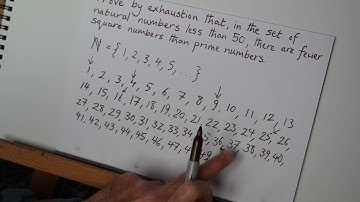 ove by exhaustion that, in the set of
natural numbers less than 50, there are fewer
square numbers than prime numbers.
N = {1, 2, 3, 4, 5, ...}
1, 2, 3, 4, 5, 6, 7, 8, 9, 10, 11, 12, 13
14, 15, 16, 17, 18, 19, 20, 21, 22, 23, 24, 25, 26,
27, 28, 29, 30, 31, 32, 33, 34, 36, 37, 38, 39, 40,
41, 42, 43, 44, 45, 46, 47, 49